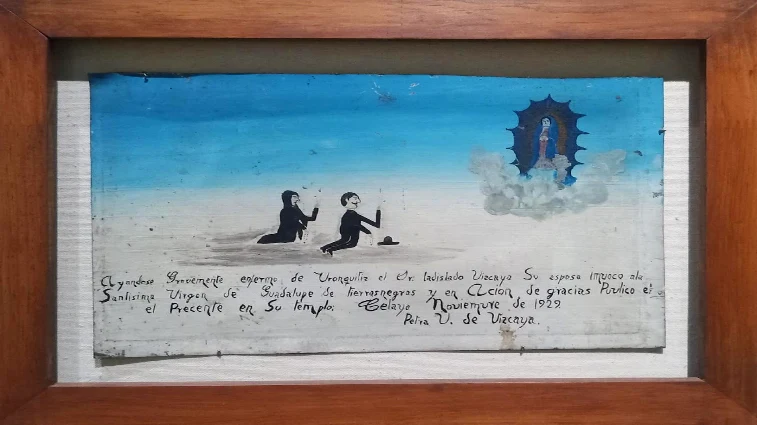 Ayandose Gravemente enfermo de Vronquitiz el Sr. ladislado Vizcaya Su esposa invoco ala
Santisima Virgen de Guadalupe de tierrasnegras y en Acion de gracias Puvlico
el Precente en Su templo. Celaya Noviembre de 1929
Petra V. de Vizcaya.